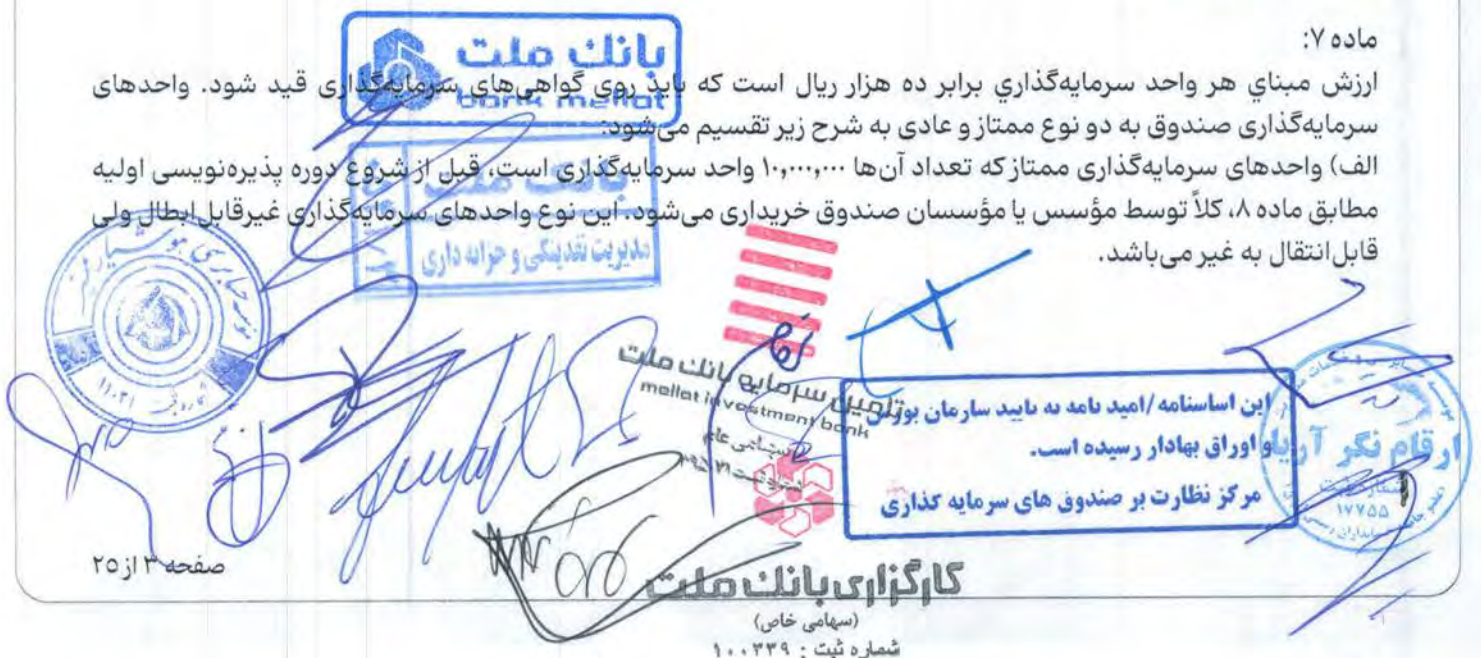 ماده ۷:
ارزش مبناي هر واحد سرمایه‌گذاري برابر ده هزار ریال است که باید روی گواهی‌های سرمایه‌گذاری قید شود. واحدهای
سرمایه‌گذاری صندوق به دو نوع ممتاز و عادی به شرح زیر تقسیم می‌شود:
الف) واحدهای سرمایه‌گذاری ممتاز که تعداد آن‌ها ۱۰,۰۰۰,۰۰۰ واحد سرمایه‌گذاری است، قبل از شروع دوره پذیره‌نویسی اولیه
مطابق ماده ۸، کلاً توسط مؤسس یا مؤسسان صندوق خریداری می‌شود. این نوع واحدهای سرمایه‌گذاری غیرقابل ابطال ولی
قابل‌انتقال به غیر می‌باشد.
بانك ملت
bank mellat
بانک ملت
مدیریت نقدینگی و خزانه داری
۱۱۰۲۱
تامین سرمایه بانك ملت
mellat investment bank
سهامی عام
این اساسنامه /امید نامه به تایید سازمان بورس
و اوراق بهادار رسیده است.
مرکز نظارت بر صندوق های سرمایه گذاری
ارقام نگر آریا
شماره ثبت
۱۷۷۵۵
صفحه ۳ از ۲۵
کارگزاری بانك ملت
(سهامی خاص)
شماره ثبت : ۱۰۰۳۳۹